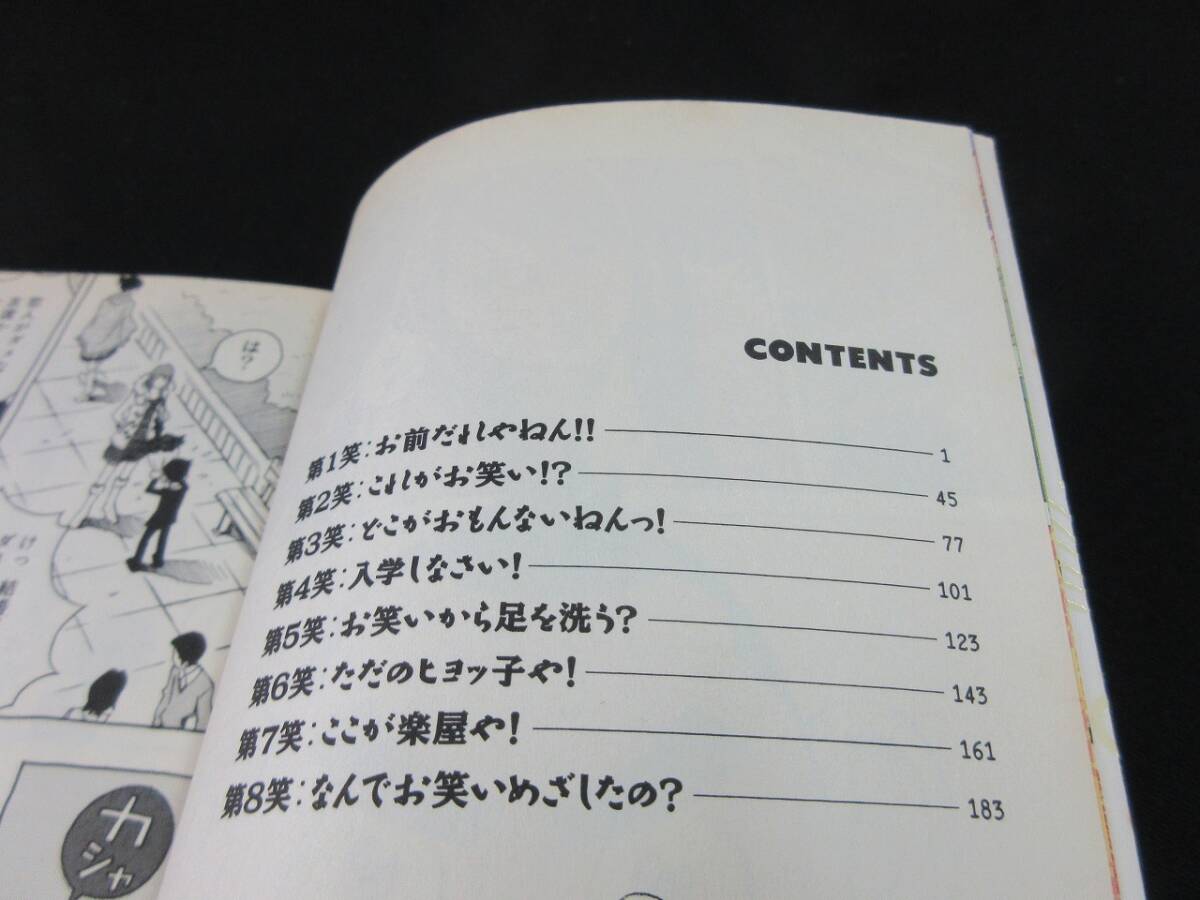 CONTENTS
第1笑:お前だれやねん!! 1
第2笑:これがお笑い!? 45
第3笑:どこがおもんないねんっ! 77
第4笑:入学しなさい! 101
第5笑:お笑いから足を洗う? 123
第6笑:ただのヒヨッ子や! 143
第7笑:ここが楽屋や! 161
第8笑:なんでお笑いめざしたの? 183
は?
けっ
カシャ